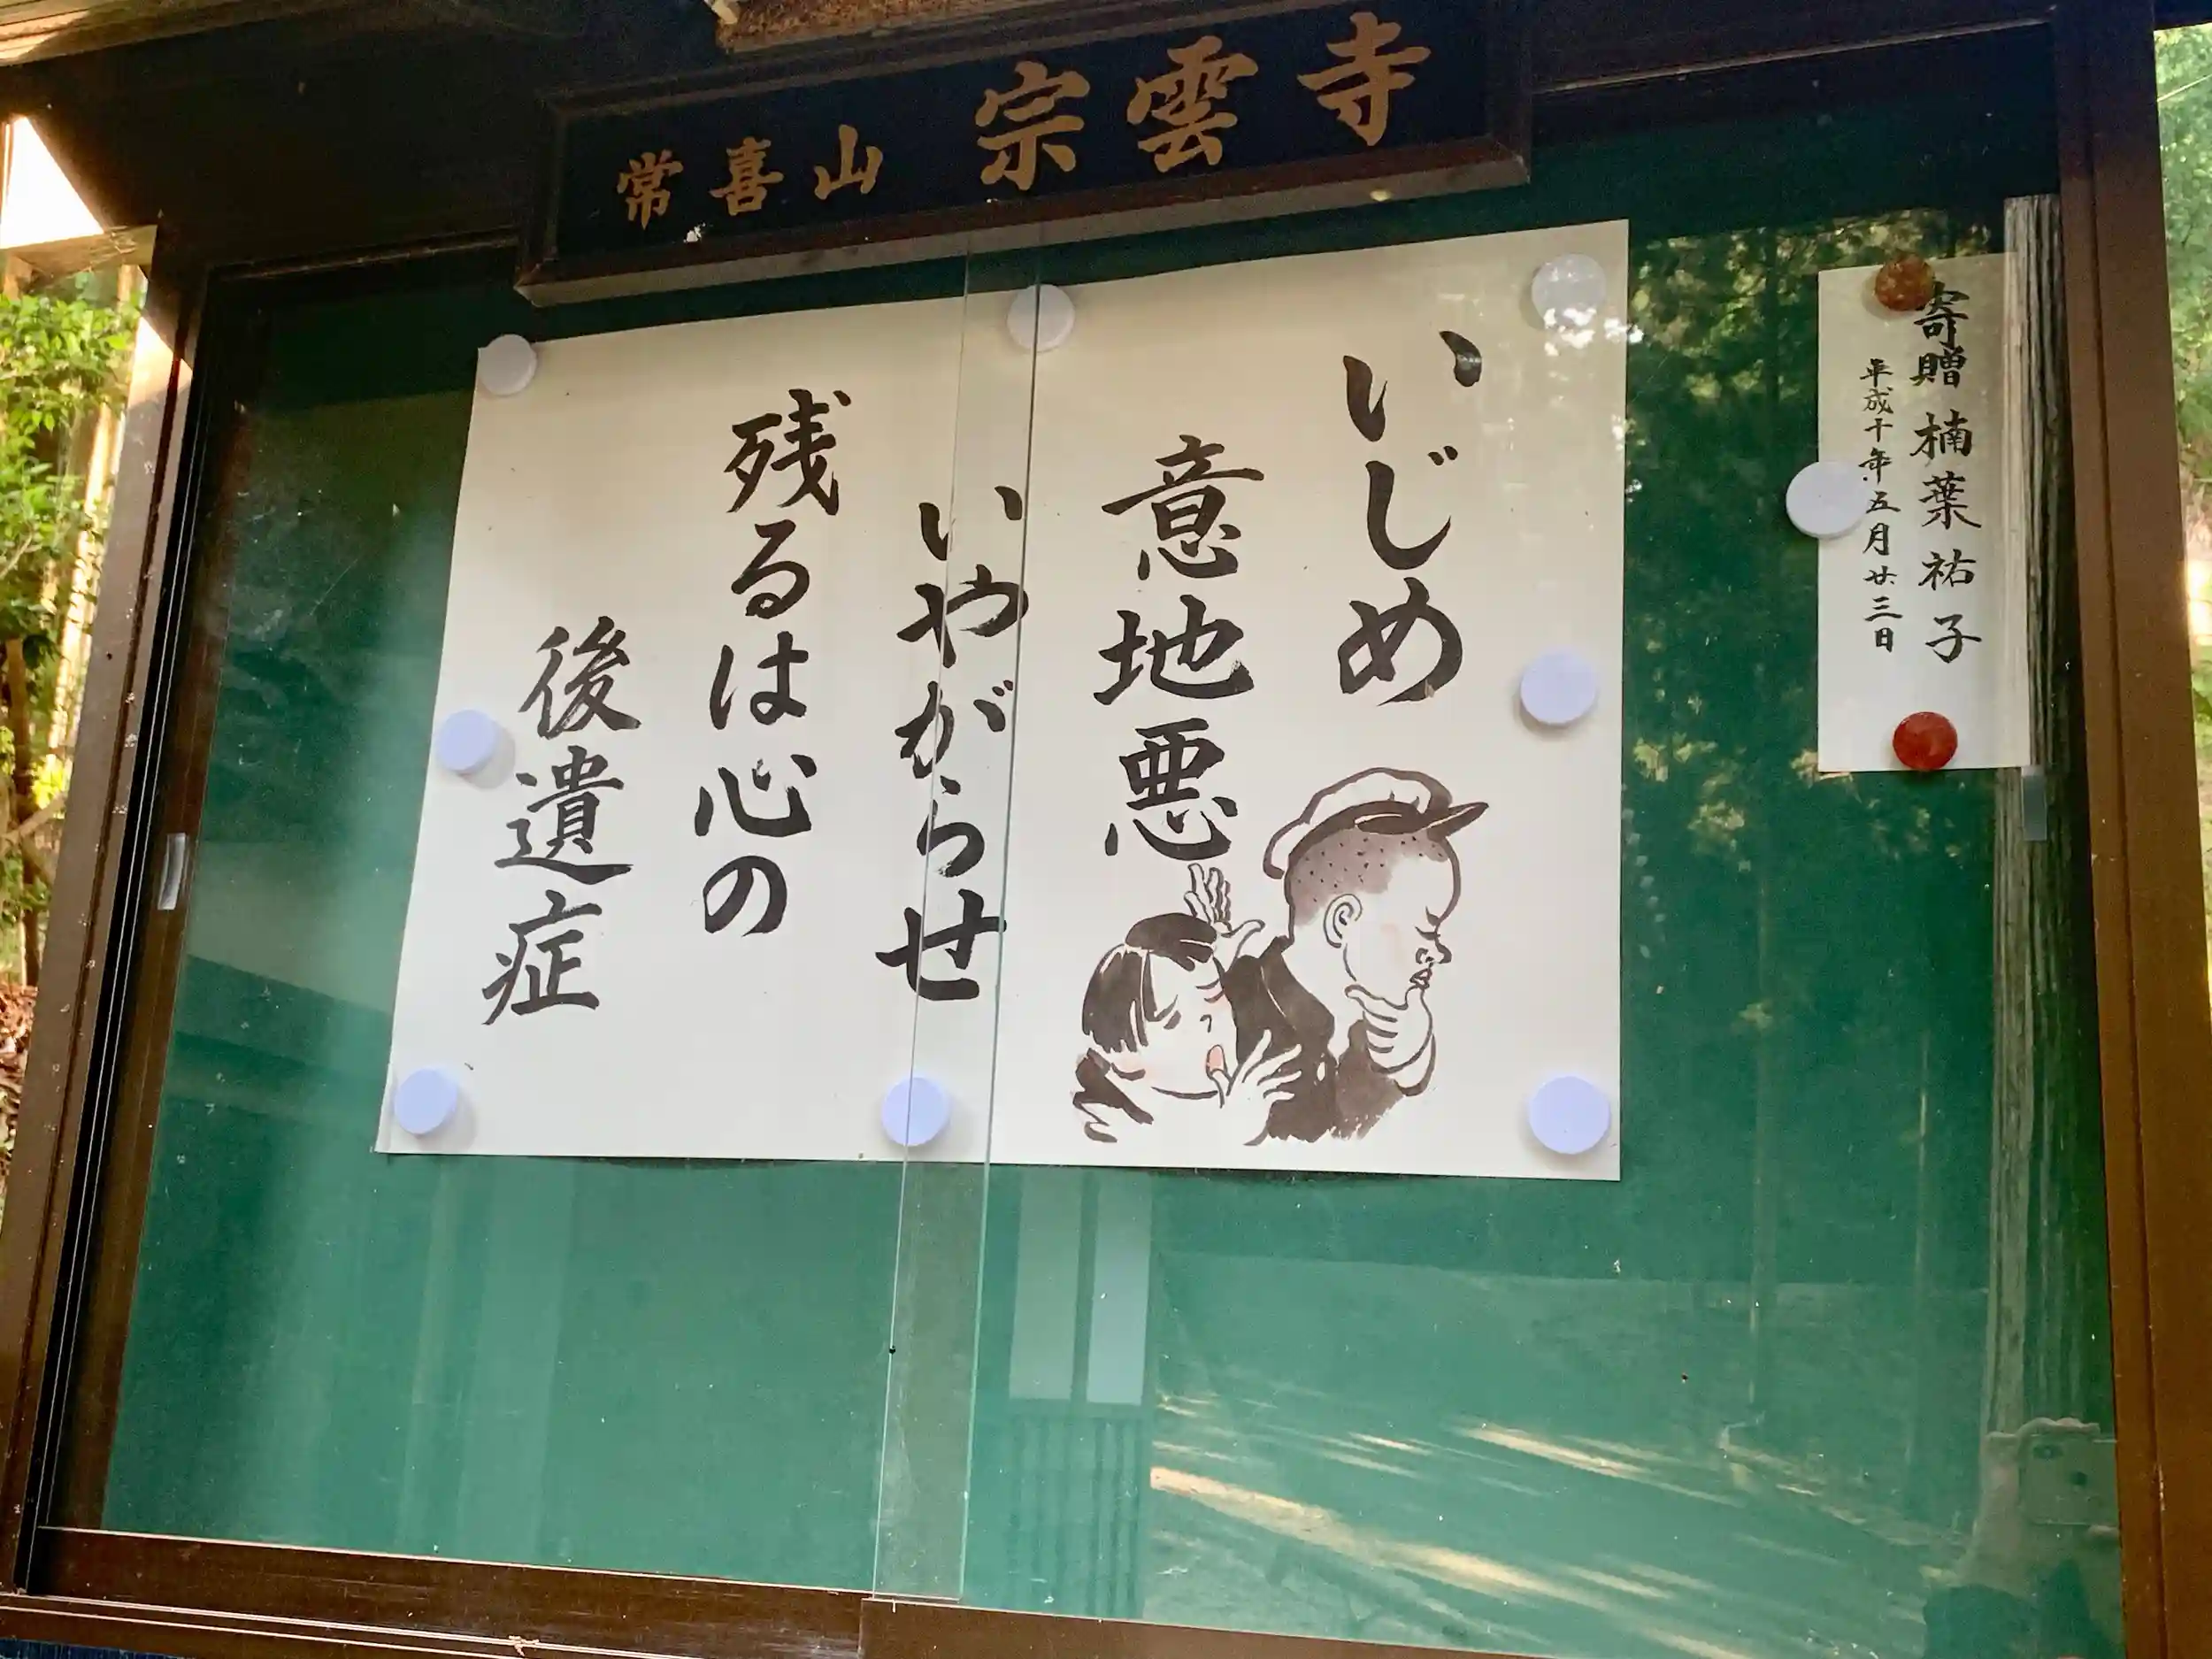 常喜山 宗雲寺
いじめ
意地悪
いやがらせ
残るは心の
後遺症
寄贈 楠葉祐子
平成十年五月廿三日